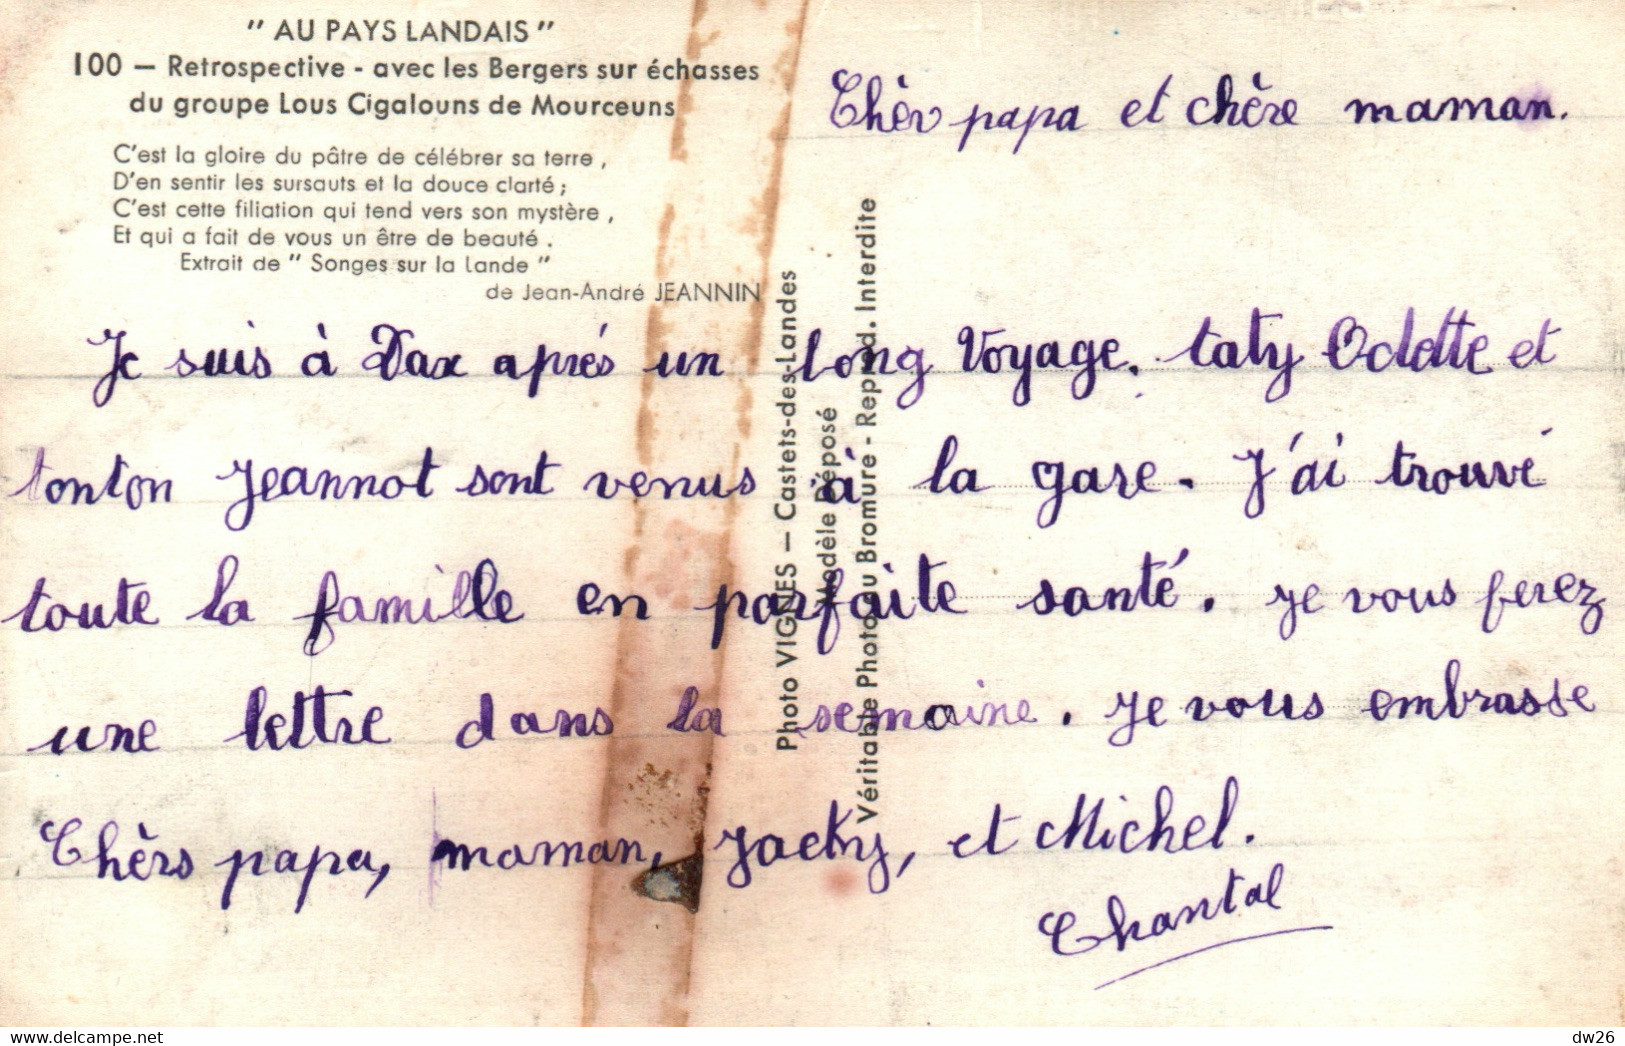 " AU PAYS LANDAIS "
100 — Retrospective - avec les Bergers sur échasses
du groupe Lous Cigalouns de Mourceuns
C'est la gloire du pâtre de célébrer sa terre,
D'en sentir les sursauts et la douce clarté ;
C'est cette filiation qui tend vers son mystère,
Et qui a fait de vous un être de beauté.
Extrait de " Songes sur la Lande "
de Jean-André JEANNIN
Photo VIGNES — Castets-des-Landes
Modèle Déposé
Véritable Photo au Bromure - Reprod. Interdite
Chèr papa et chère maman.
Je suis à Dax aprés un long Voyage. taty Odette et
tonton Jeannot sont venus à la gare. J'ai trouvé
toute la famille en parfaite santé. Je vous ferez
une lettre dans la semaine. Je vous embrasse
Chèrs papa, maman, Jacky, et Michel.
Chantal
dw26